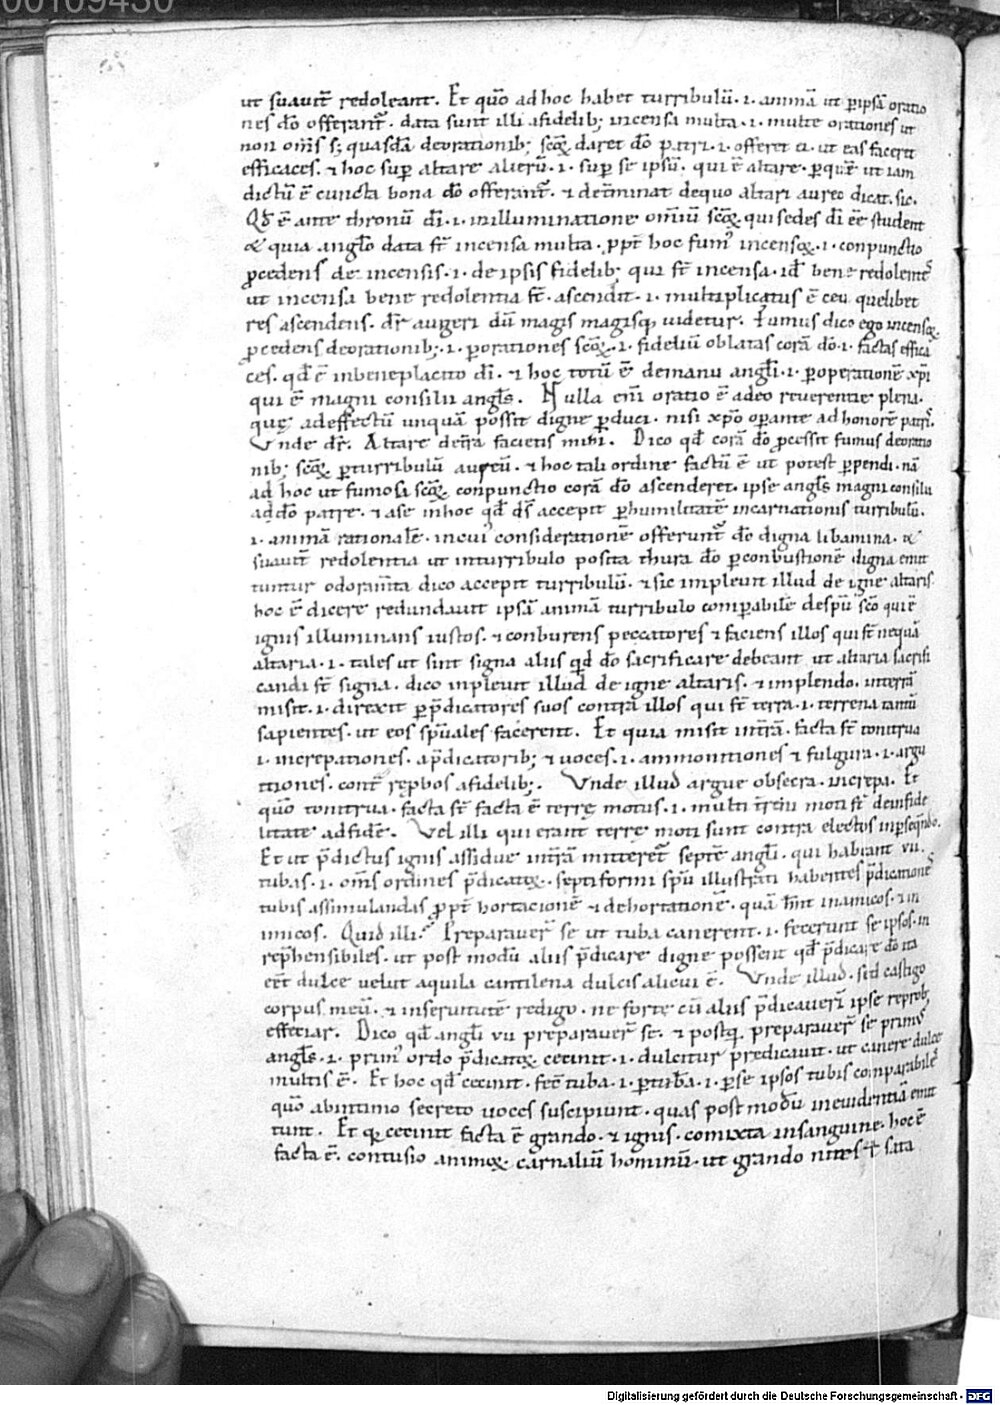 ut suauit̄ redoleant. Et quō ad hoc habet turribulū .i. animā ut p̱ipsā oratio
nes dō offerant᷑. data sunt illi a fidelib; incensa multa .i. multe orationes ut
non om̄s s; quasdā de orationib; sc̄oꝝ daret dō patri .i. offeret ei. ut eas faceret
efficaces. ⁊ hoc sup̱ altare alterū .i. sup̱ se ipsū. qui ē altare. p̱ quē ut iam
dictū ē cuncta bona dō offerant᷑. ⁊ det̄minat de quo altari aureo dicat. sic.
Qd̄ ē ante thronū dī .i. in illuminatione omīū sc̄oꝝ qui sedes dī ēē student
& quia anglo data st̄ incensa multa. ꝓpt̄ hoc fum᷒ incensoꝝ .i. conpunctio
ꝓcedens de incensis .i. de ipsis fidelib; qui st̄ incensa. id̄ bene redolentes
ut incensa bene redolentia st̄. ascendit .i. multiplicatus ē ceu quelibet
res ascendens. dr̄ augeri dū magis magisq; uidetur. Fumus dico ego incensoꝝ
ꝓcedens de orationib; .i. p̱ orationes sc̄oꝝ .i. fidelium oblatas corā dō .i. factas effica
ces. qd̄ ē in beneplacito dī. ⁊ hoc totū ē de manu angl̄i .i. p̱ operationē xp̄i
qui ē magni consilii angl̄s. Nulla enī oratio ē adeo reuerentie plena.
quę ad effectū unquā possit digne p̱duci. nisi xp̄o op̱ante ad honorē patr̄.
Vnde dr̄. Altare de t̄ra facietis mihi. Dico qd̄ corā dō ꝓcessit fumus de oratio
nib; sc̄oꝝ p̱ turribulū aureū. ⁊ hoc tali ordine factū ē ut potest p̱pendi. nā
ad hoc ut fumosa sc̄oꝝ conpunctio corā dō ascenderet. ipse angl̄s magni consilii
a dō patre. ⁊ a se in hoc qd̄ ds̄ accepit p̱ humilitatē incarnationis turribulū.
.i. animā rationalē. in cui᷒ consideratione offerunt᷑ dō digna libamina. &
suauit̄ redolentia ut in turribulo posita thura dō p̱ conbustionē digna emit
tuntur odoram̄ta dico accepit turribulū. ⁊ sic impleuit illud de igne altaris.
hoc ē dicere redundauit ipsā animā turribulo comparabilē de sp̄u sc̄o qui ē
ignis illuminans iustos. ⁊ conburens peccatores ⁊ faciens illos qui st̄ nequā
altaria .i. tales ut sint signa aliis qd̄ dō sacrificare debeant ut altaria sacrifi
candi st̄ signa. dico inpleuit illud de igne altaris. ⁊ implendo. in terrā
misit .i. direxit p̱ p̄dicatores suos contra illos qui st̄ terra .i. terrena tantū
sapientes. ut eos sp̄uales facerent. Et quia misit in t̄rā. facta st̄ tonitrua
.i. increpationes. a p̄dicatorib; ⁊ uoces .i. ammonitiones ⁊ fulgura .i. argu
tiones. cont̄ rep̱bos a fidelib;. Vnde illud argue obsecra. increpa. Et
quō tonitrua. facta st̄ facta ē terrę motus .i. multi t̄reni moti st̄ de infide
litate ad fidē. Vel illi qui erant terrę moti sunt contra electos in p̱seq̄ndo.
Et ut p̄dictus ignis assidue in t̄rā mitteret᷑ septē angl̄i. qui habeant vii.
tubas .i. om̄s ordines p̄dicatoꝝ. septiformi sp̄u illustrati habentes p̄dicationes
tubis assimulandas ꝓpt̄ hortationē ⁊ dehortationē. quā hn̄t in amicos. ⁊ in
imicos. Quid illi? Preparauer̄ se ut tuba canerent .i. fecerunt se ipsos. in
rep̄hensibiles. ut post modū aliis p̄dicare digne possent qd̄ p̄dicare dō ita
eēt dulce uelut aquila cantilena dulcis alicui ē. Vnde illud. sed castigo
corpus meū. ⁊ in seruitutē redigo. ne forte cū aliis p̄dicauerī ipse reprob᷒
efficiar. Dico qd̄ angl̄i vii preparauer̄ se. ⁊ postq̄ preparauer̄ se prim᷒
angl̄s .i. prim᷒ ordo p̄dicatoꝝ cecinit .i. dulcitur predicauit. ut canere dulce
multis ē. Et hoc qd̄ cecinit. fec̄ tuba .i. p̱ tubā .i. p̱ se ipsos tubis comparabilē
quō ab intimo secreto uoces suscipiunt. quas post modū in euidentiā emit
tunt. Et q̄ cecinit facta ē grando. ⁊ ignis. comixta in sanguine. hoc ē
facta ē. contusio animoꝝ. carnaliū hominū. ut grando